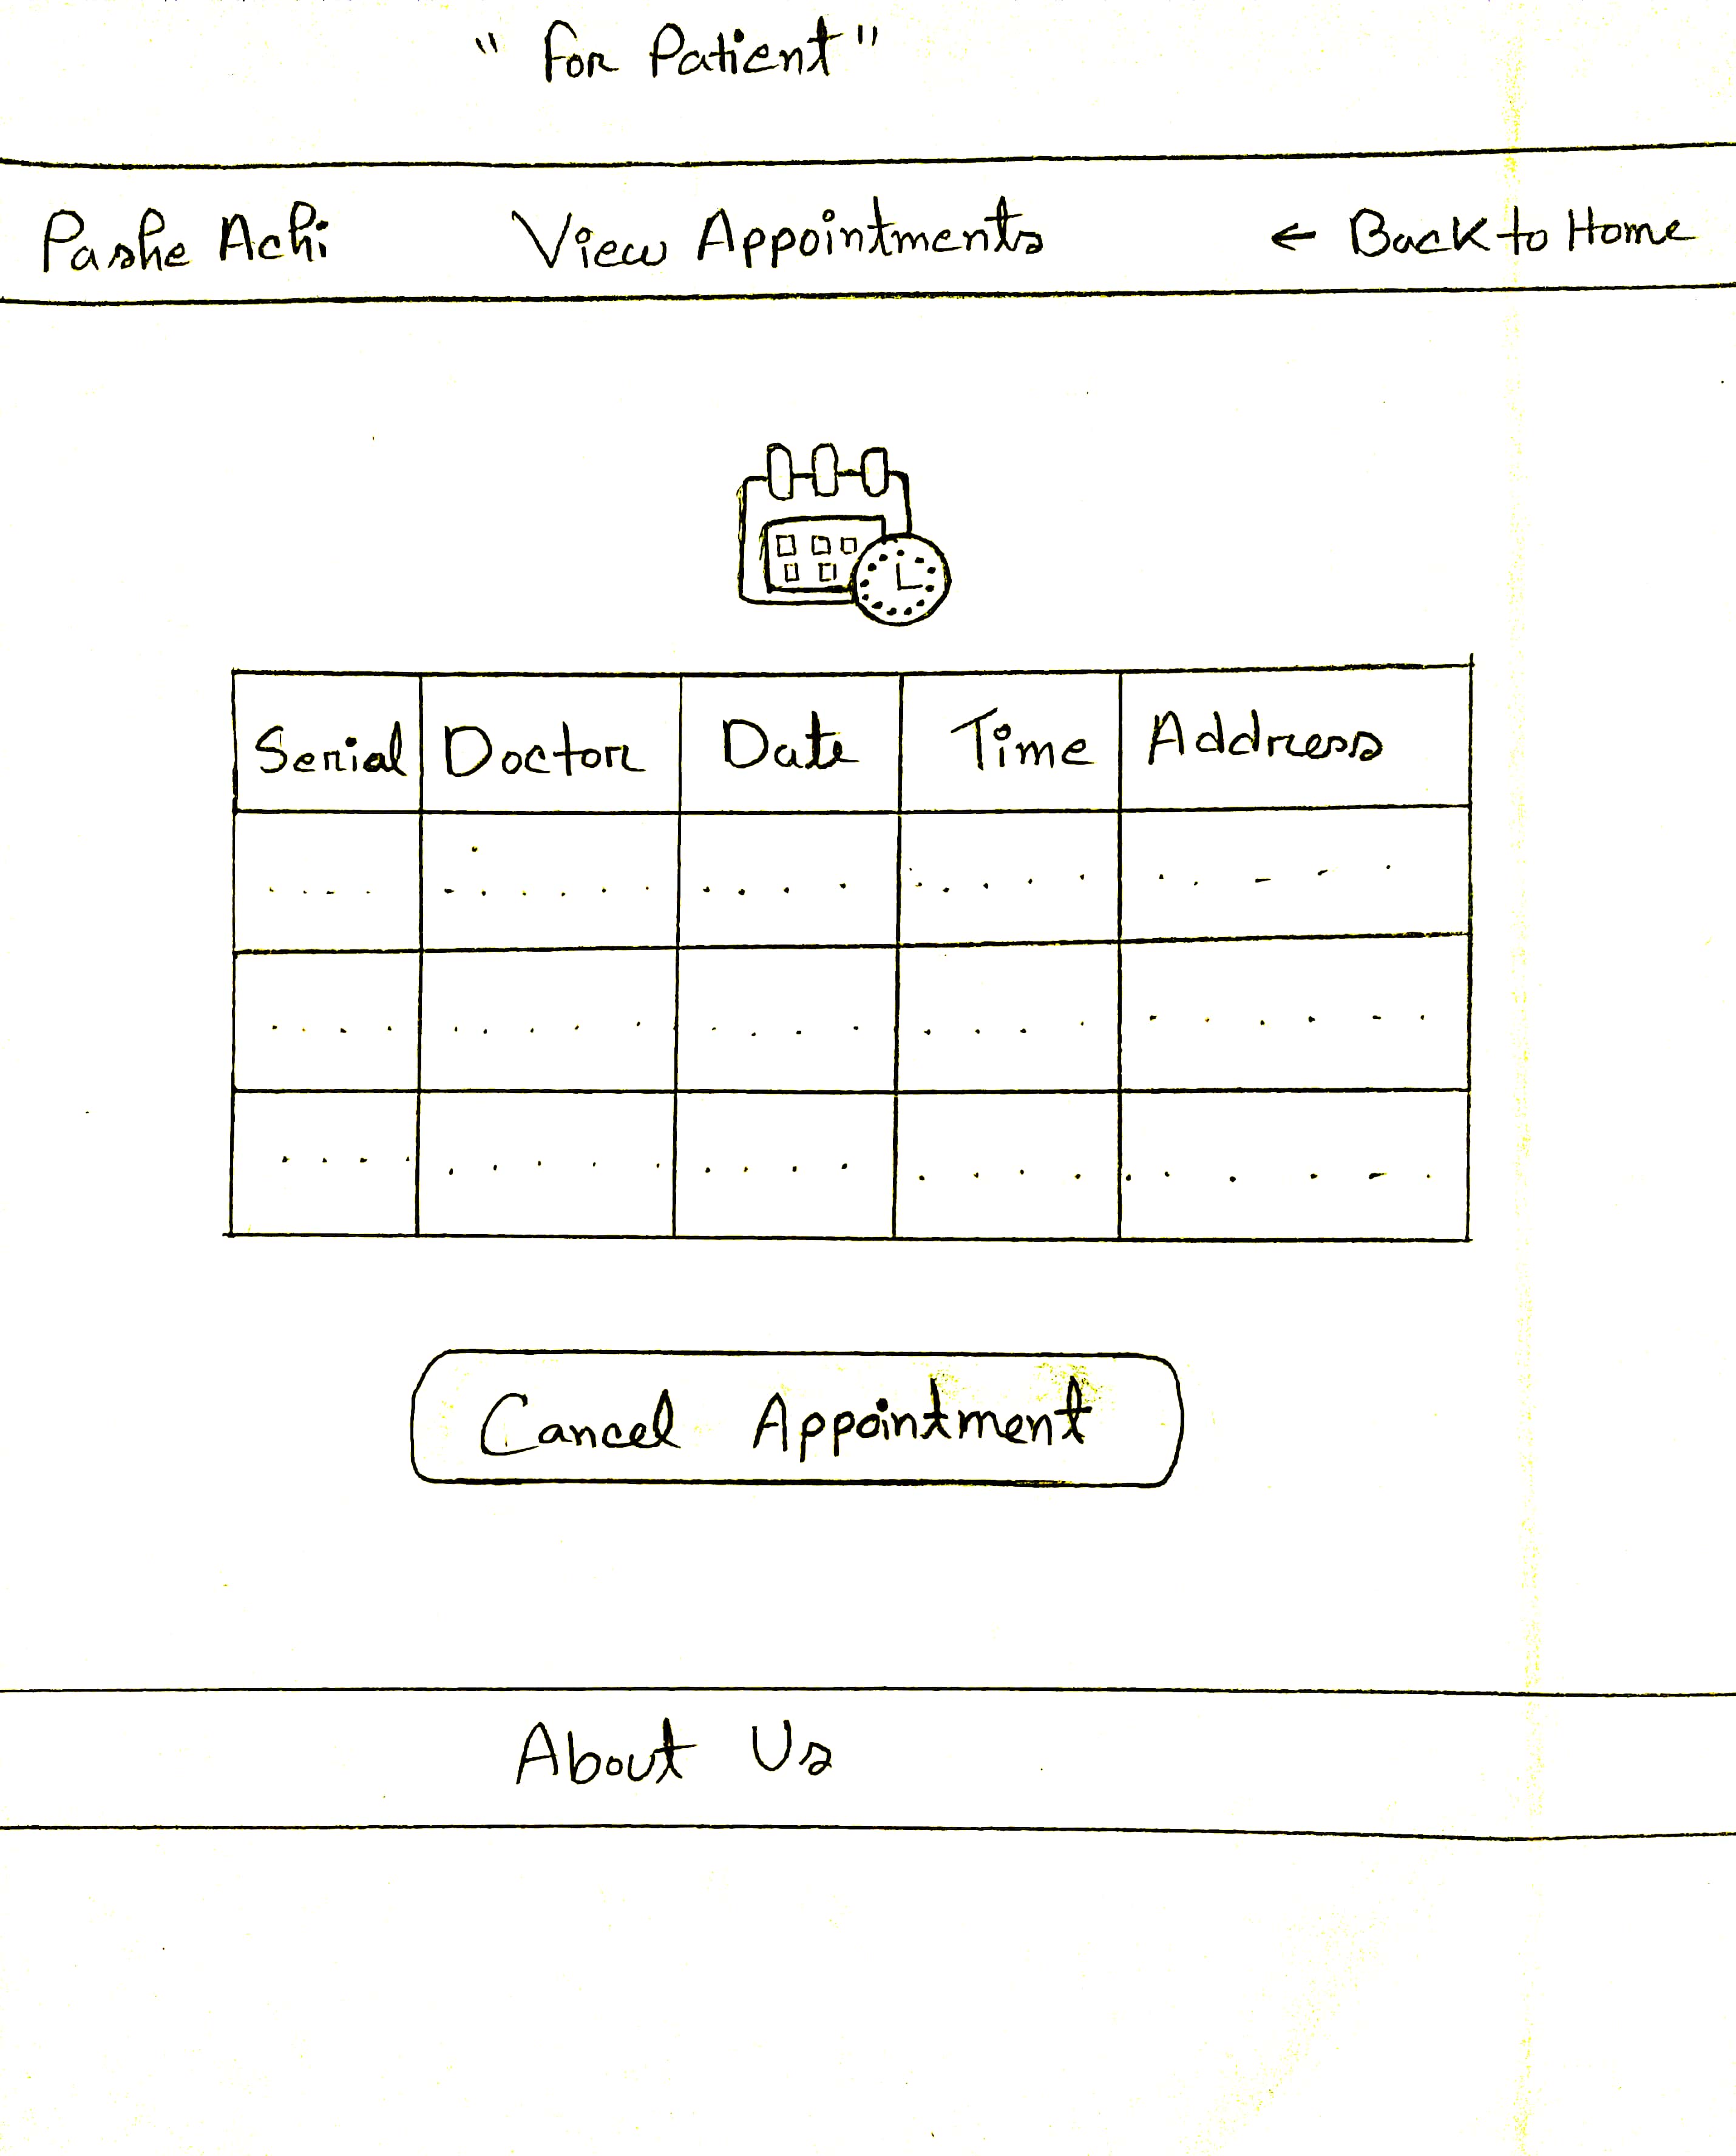 "For Patient"
Pashe Achi View Appointments ← Back to Home
Serial Doctor Date Time Address
Cancel Appointment
About Us